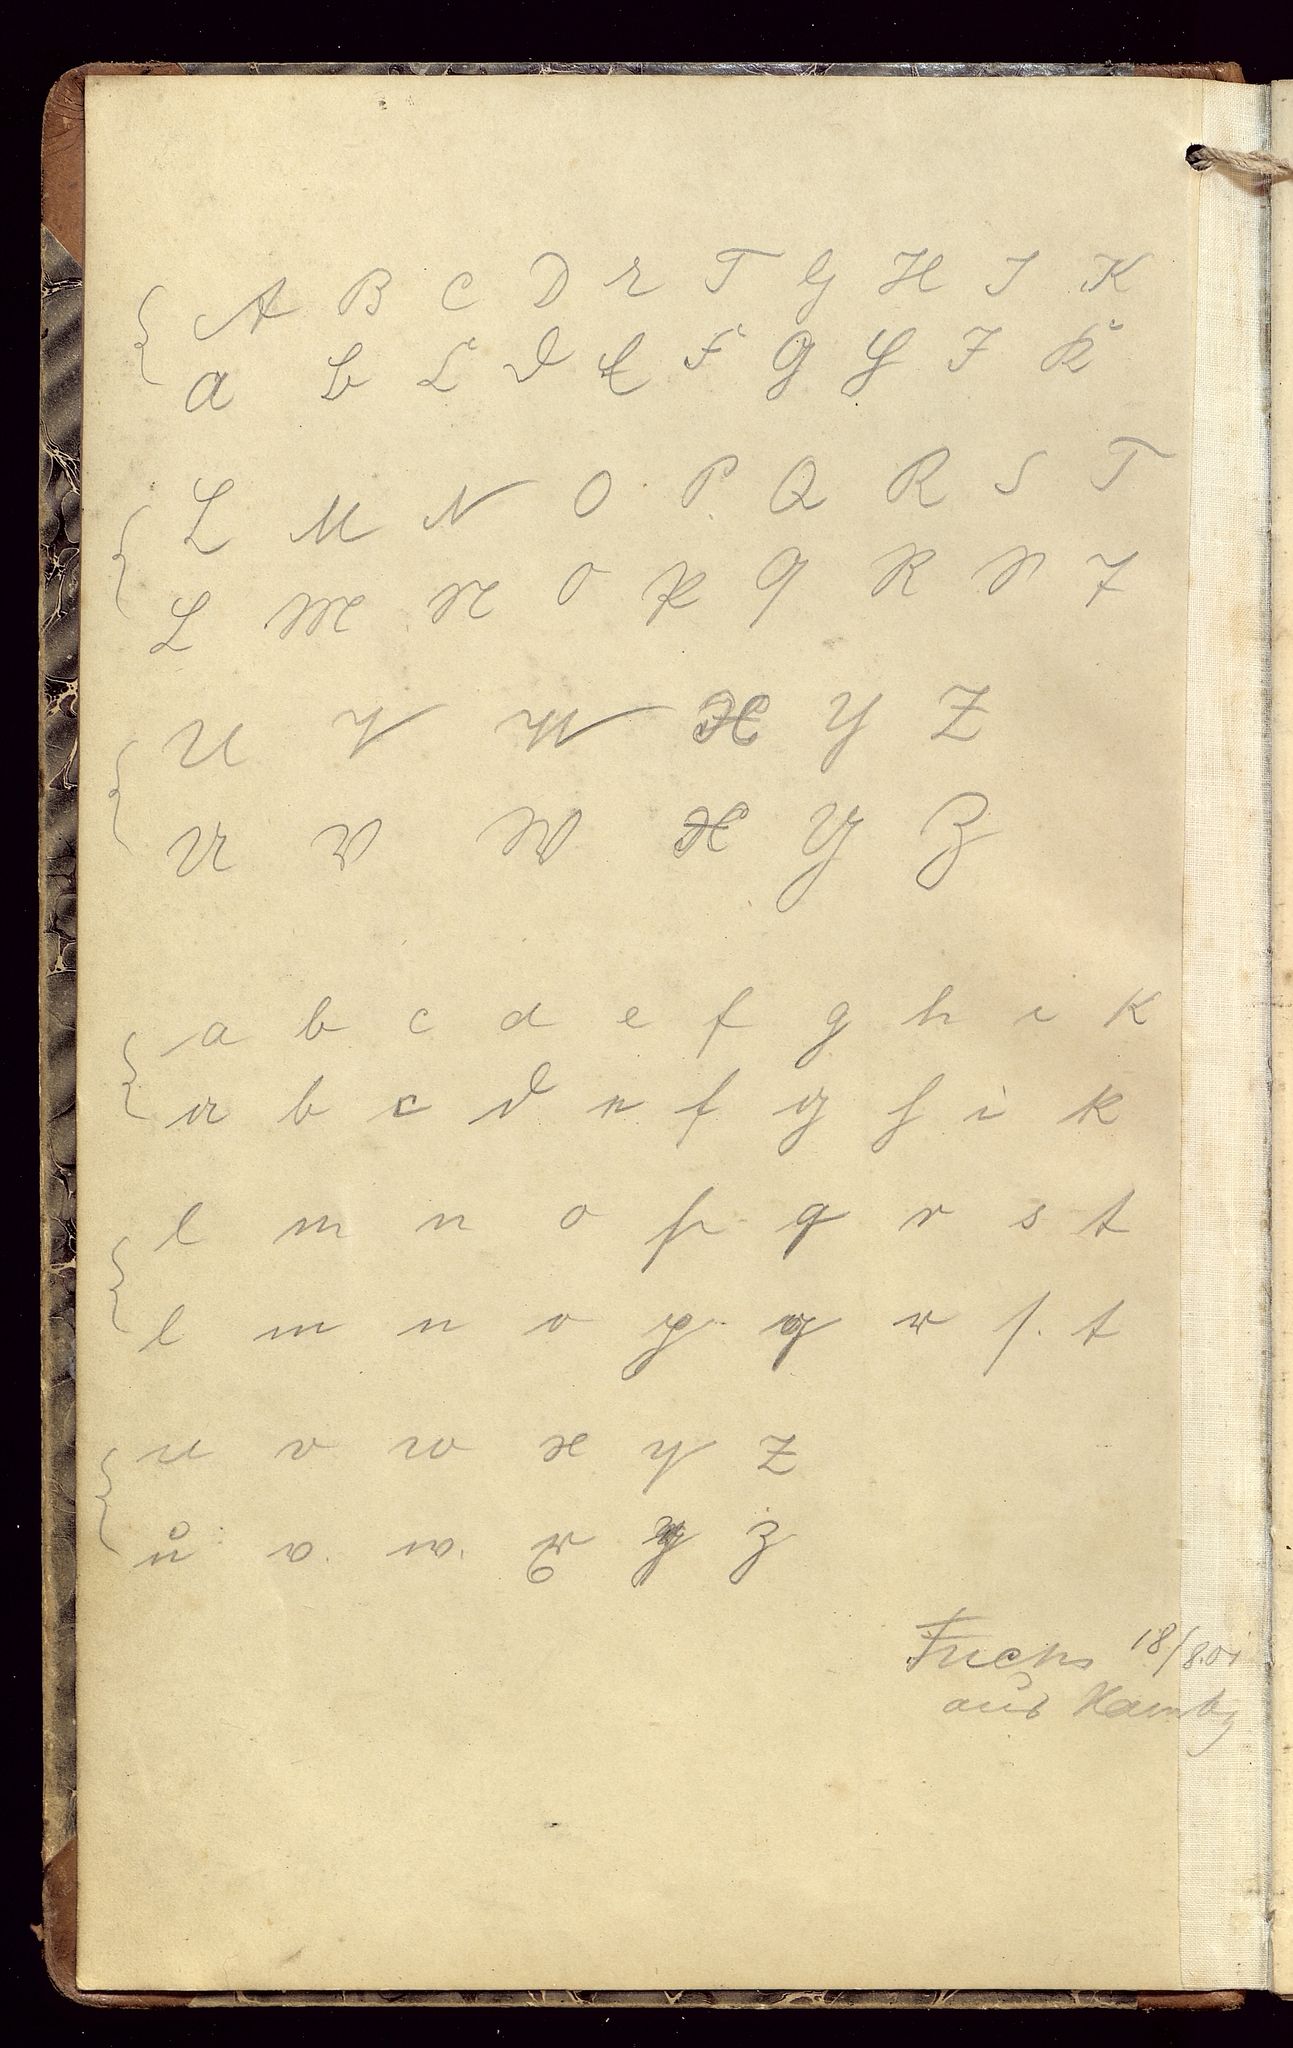 A B C D E F G H I K
A B C D E F G H I K
L M N O P Q R S T
L M N O P Q R S T
U V W X Y Z
U V W X Y Z
a b c d e f g h i k
a b c d e f g h i k
l m n o p q r s t
l m n o p q r s t
u v w x y z
u v w x y z
Fuchs 18/8.01
aus Hambg